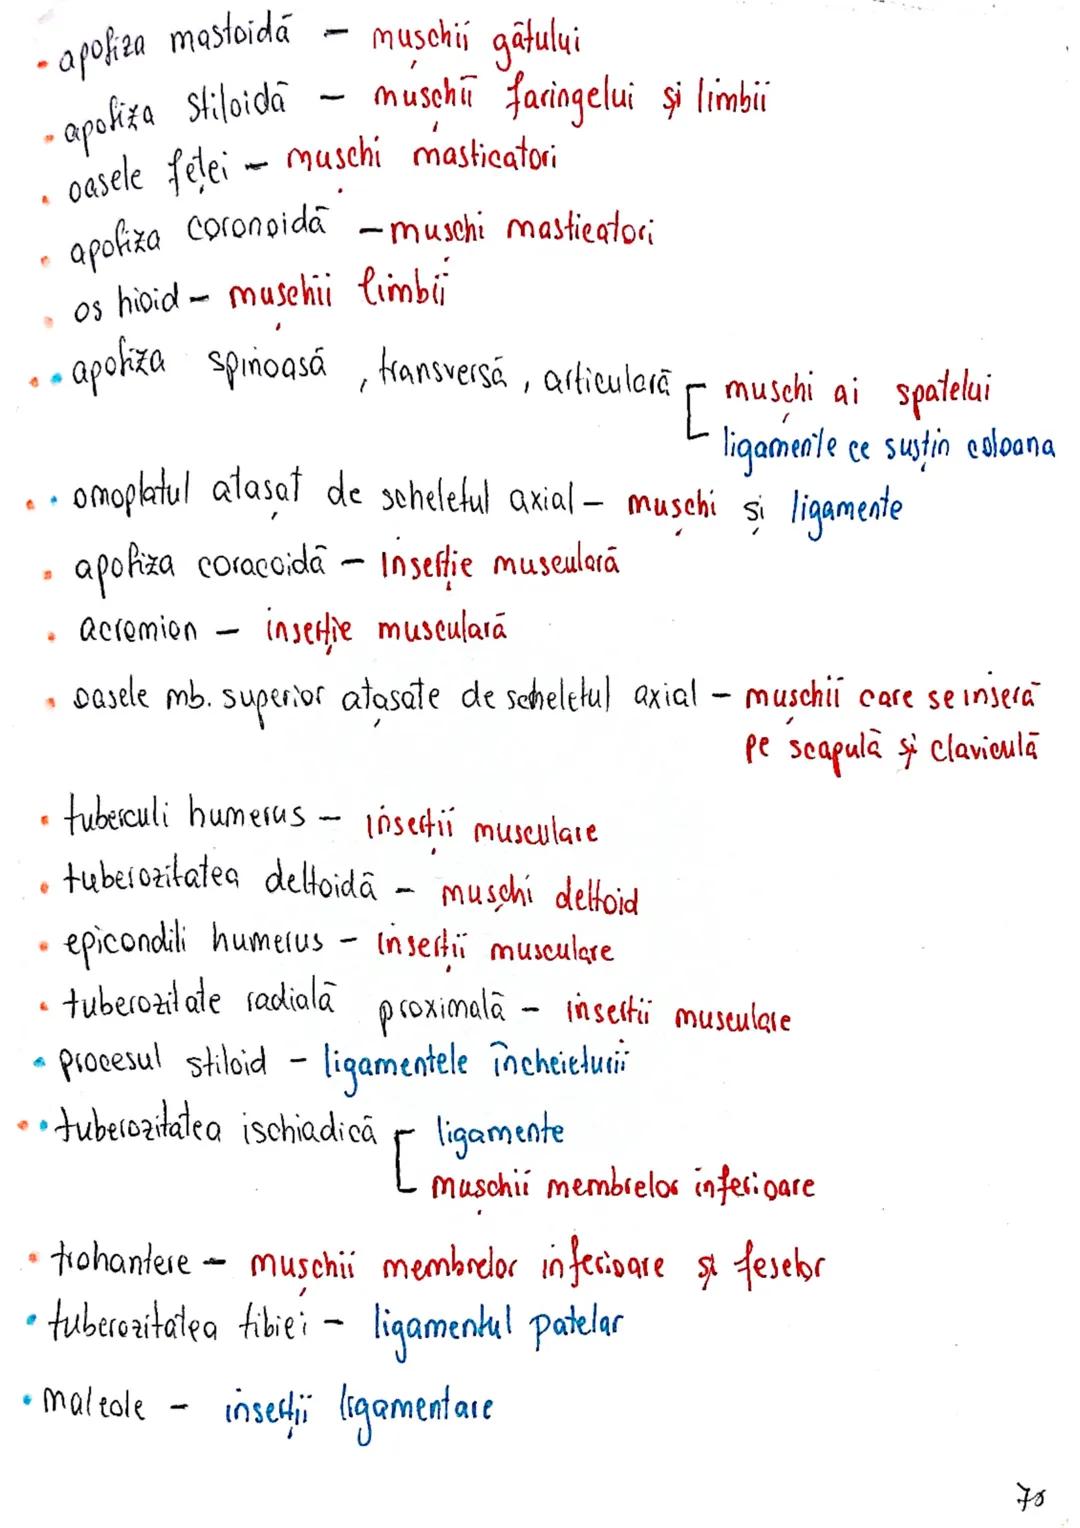 • apofiza mastoidă – mușchii gâtului
• apofiza stiloidă – mușchii faringelui și limbii
• oasele feței – mușchi masticatori
• apofiza coronoidă – mușchi masticatori
• os hioid – mușchii limbii
•• apofiza spinoasă, transversă, articulară [ mușchi ai spatelui
ligamente ce susțin coloana
•• omoplatul atașat de scheletul axial – mușchi și ligamente
• apofiza coracoidă – inserție musculară
• acromion – inserție musculară
• oasele mb. superior atașate de scheletul axial – mușchii care se inseră
pe scapulă și claviculă
• tuberculi humerus – inserții musculare
• tuberozitatea deltoidă – mușchi deltoid
• epicondili humerus – inserții musculare
• tuberozitate radială proximală – inserții musculare
• procesul stiloid – ligamentele încheieturii
•• tuberozitatea ischiadică [ ligamente
mușchii membrelor inferioare
• trohantere – mușchii membrelor inferioare și feselor
• tuberozitatea tibiei – ligamentul patelar
• maleole – inserții ligamentare